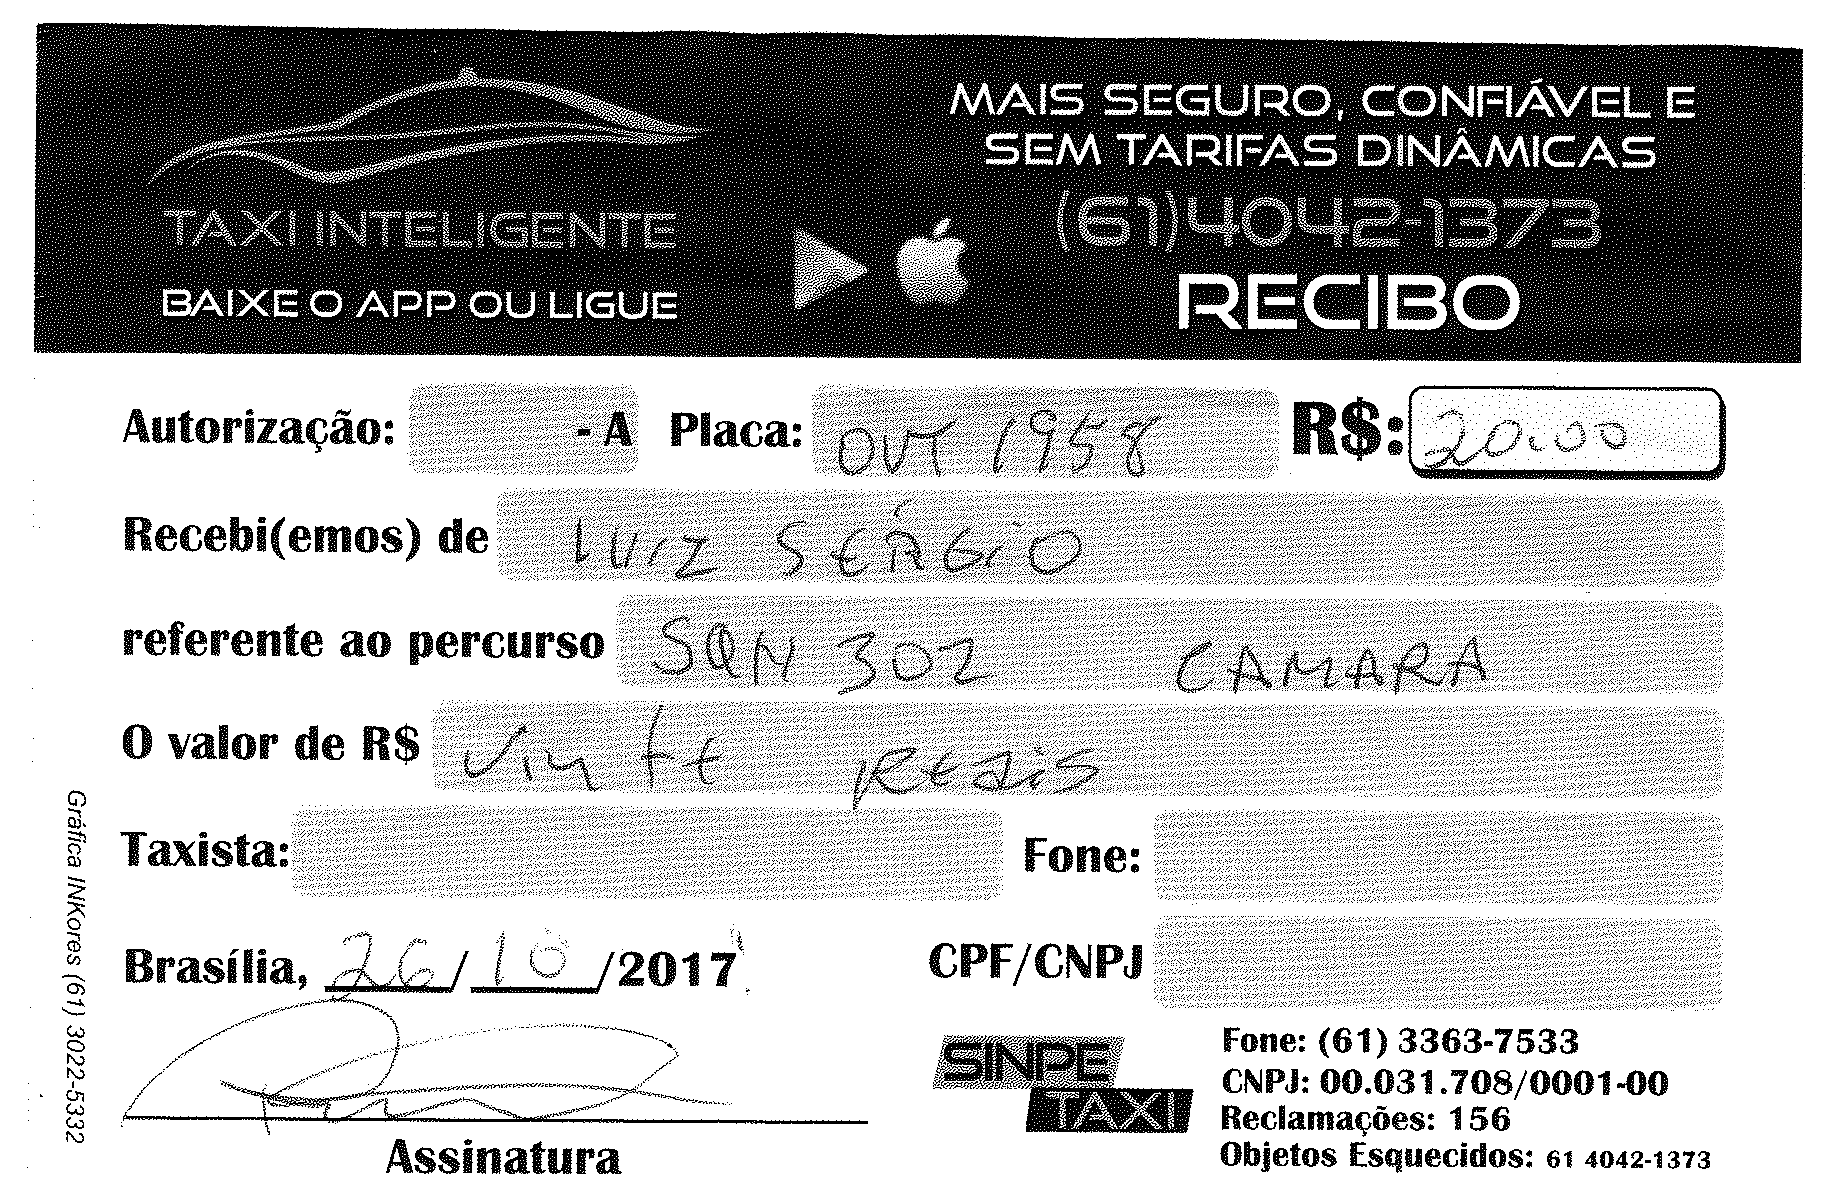 MAIS SEGURO, CONFIÁVEL E
SEM TARIFAS DINÂMICAS
(61)4042-1373
TAXI INTELIGENTE
BAIXE O APP OU LIGUE
RECIBO
Autorização: - A Placa: OVT 1958 R$: 20.00
Recebi(emos) de LUIZ SÉRGIO
referente ao percurso SQN 302 CAMARA
O valor de R$ Vinte REAIS
Taxista: Fone:
Brasília, 26/10/2017 CPF/CNPJ
Assinatura
SINPE
TAXI
Fone: (61) 3363-7533
CNPJ: 00.031.708/0001-00
Reclamações: 156
Objetos Esquecidos: 61 4042-1373
Gráfica INKores (61) 3022-5332